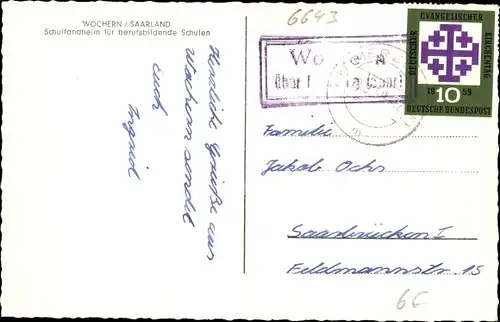 WOCHERN / SAARLAND
Schullandheim für berufsbildende Schulen
Herzliche Grüße aus
Wochern sendet
euch
Ingrid
6643
Wo
über
DEUTSCHER EVANGELISCHER KIRCHENTAG
1959
10
DEUTSCHE BUNDESPOST
Familie
Jakob Ochs
Saarbrücken I
Feldmannstr. 15
6€